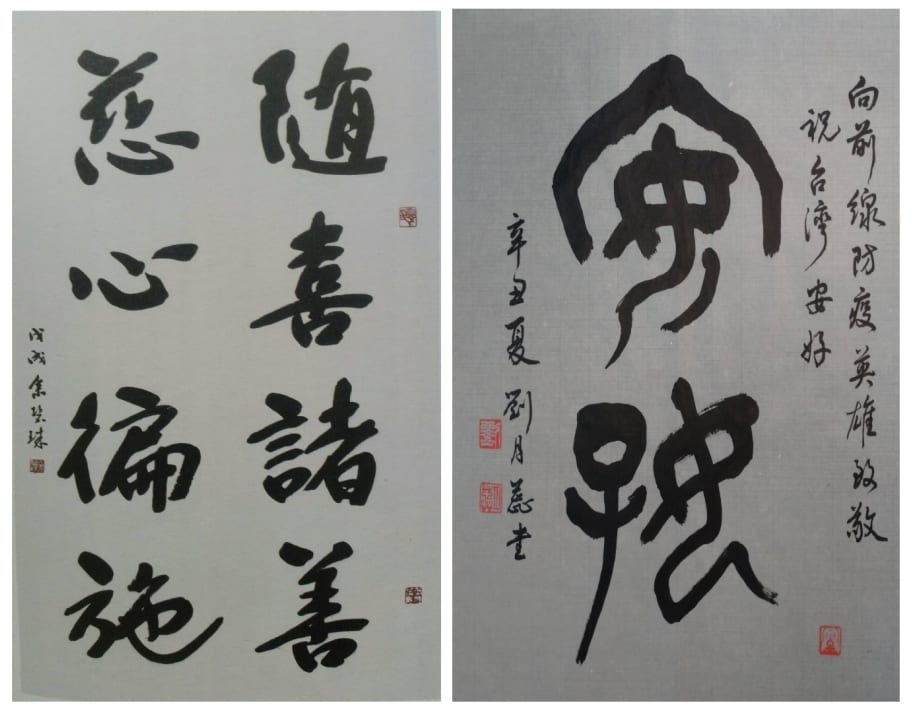 随喜諸善
慈心徧施
戊戌余珠
向前線防疫英雄致敬
祝台灣安好
安好
辛丑夏 劉月蕊书